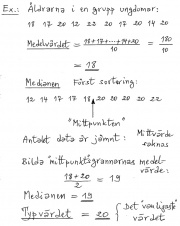 Ex.: Åldrarna i en grupp ungdomar:
18 17 20 12 22 20 17 20 14 20
Medelvärdet = 18+17+...+14+20 / 10 = 180 / 10
= 18
Medianen Först sortering:
12 14 17 17 18 20 20 20 20 22
"Mittpunkten"
Antalet data är jämnt: Mittvärde
saknas
Bilda "mittpunkts"grannarnas medel-
värde:
18+20 / 2 = 19
Medianen = 19
Typvärdet = 20 { Det "vanligaste"
värdet